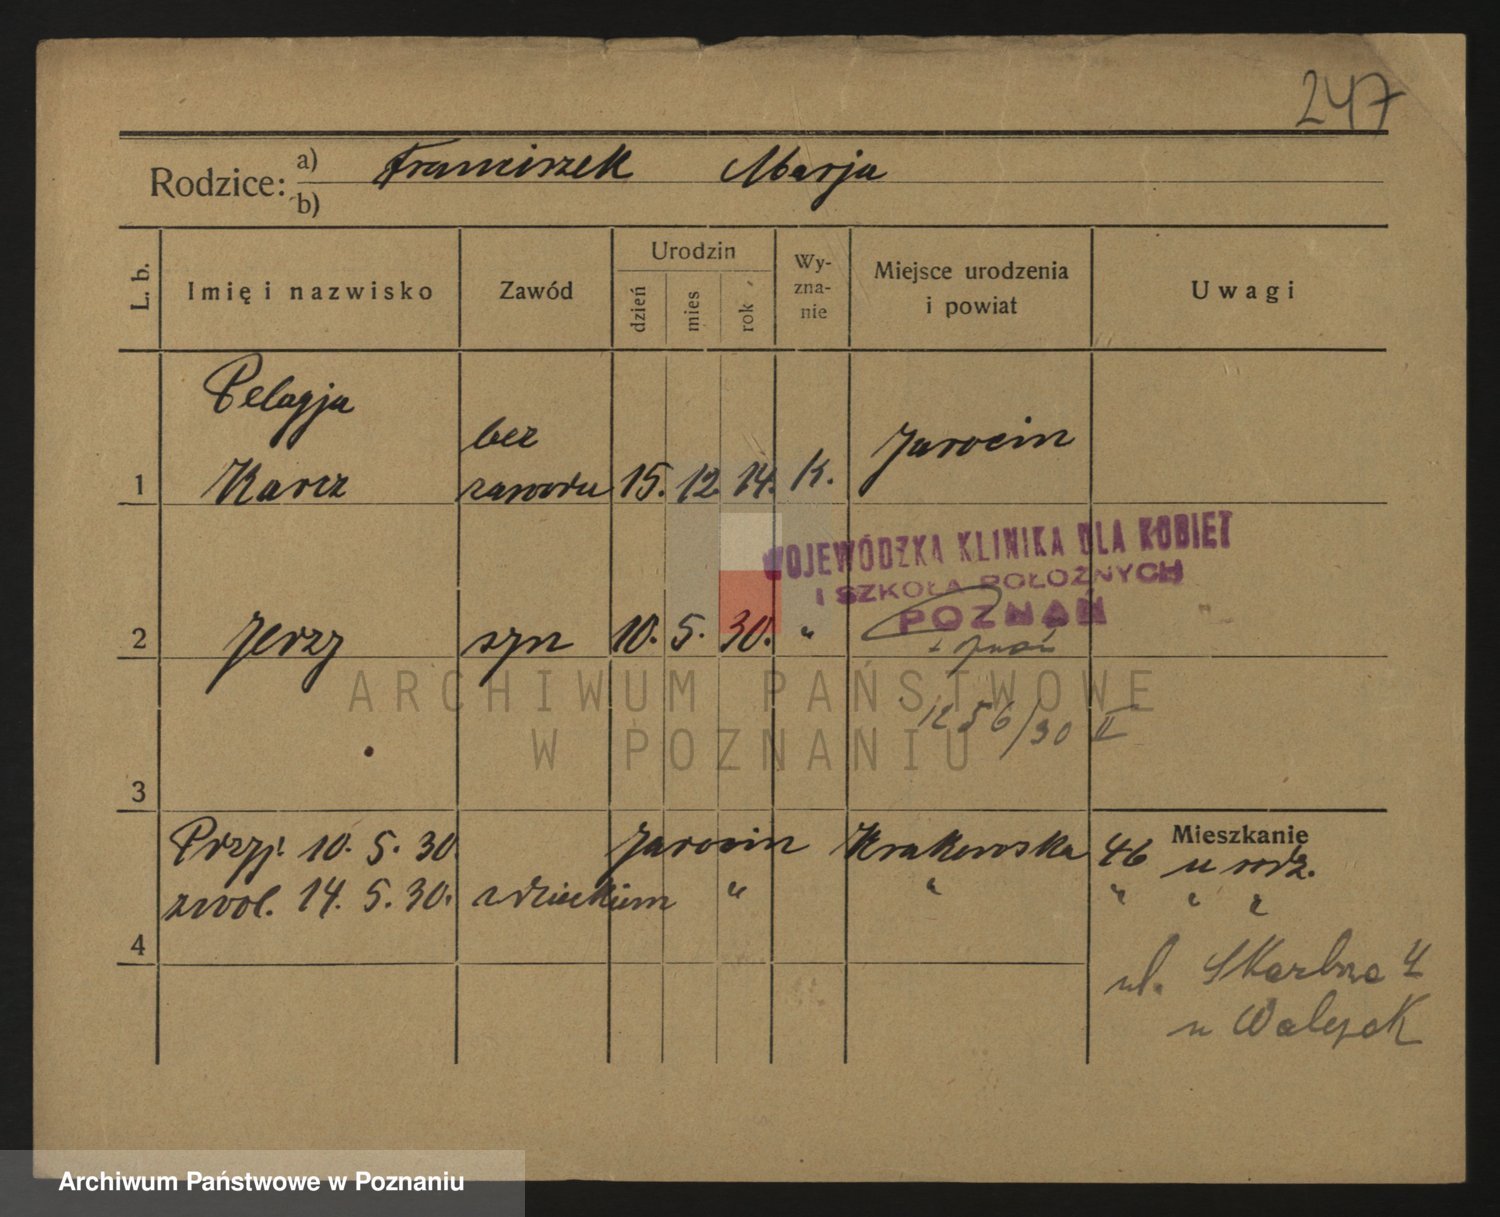 247
Rodzice: a) Franciszek Marja
b)
L. b. Imię i nazwisko Zawód Urodzin dzień mies rok Wy-zna-nie Miejsce urodzenia i powiat Uwagi
Pelagja
bez
1 Karcz zawodu 15. 12. 14. k. Jarocin
WOJEWÓDZKA KLINIKA DLA KOBIET
I SZKOŁA POŁOŻNYCH
POZNAŃ
2 Jerzy syn 10. 5. 30. "
ARCHIWUM PAŃSTWOWE
1256/30 II
W POZNANIU
3
Mieszkanie
Przyj. 10. 5. 30. Jarocin Krakowska 46 u rodz.
zwol. 14. 5. 30. z dzieckiem " " " " "
4
ul.
u
Archiwum Państwowe w Poznaniu